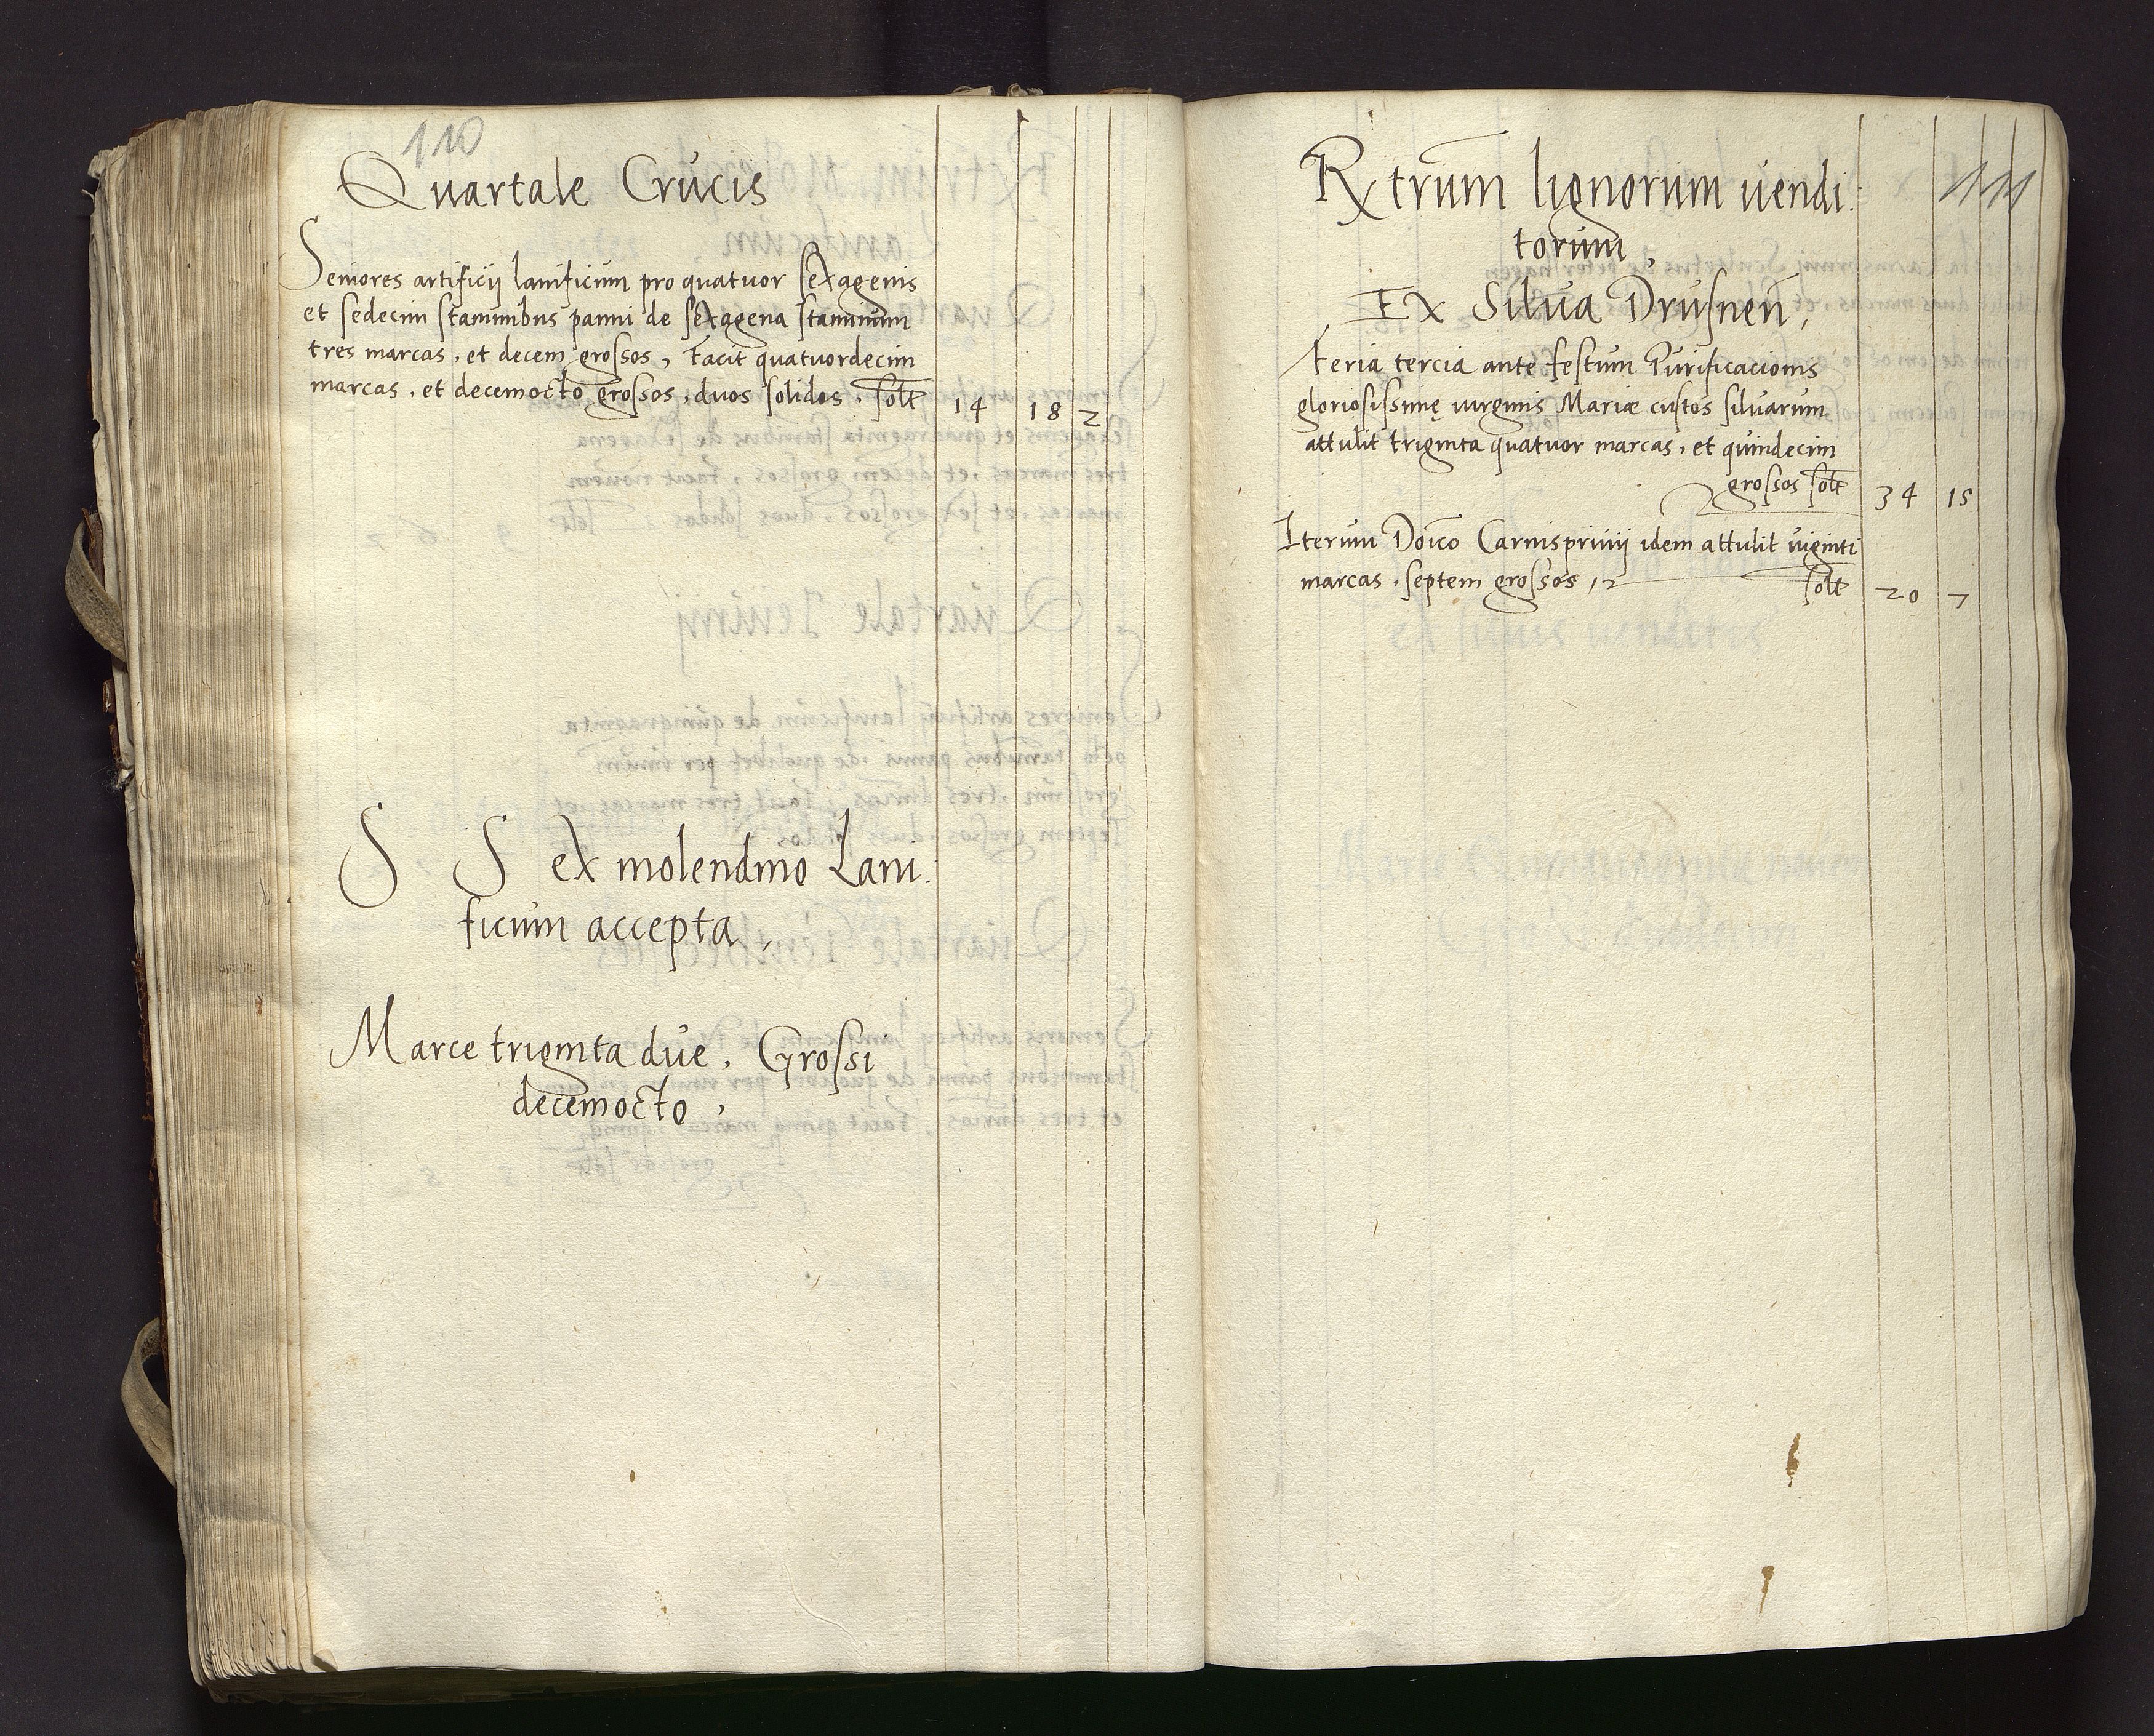 110
Quartale Crucis
Seniores artificij lanificum pro quatuor sexagenis
et sedecim staminibus panni de sexagena staminum
tres marcas, et decem grossos, Facit quatuordecim
marcas, et decemocto grossos, duos solidos, solt 14 18 2
S S ex molendino Lani:
ficum accepta,
Marce triginta due, Grossi
decemocto,
111
Rxtrum lignorum uendi:
torum,
Ex Silua Drusnen,
Feria tercia ante festum Purificacionis
gloriosissimę uirginis Mariæ custos siluarum
attulit triginta quatuor marcas, et quindecim
grossos solt 34 15
Iterum Doico Carnispriuij idem attulit uiginti
marcas, septem grossos, solt 20 7